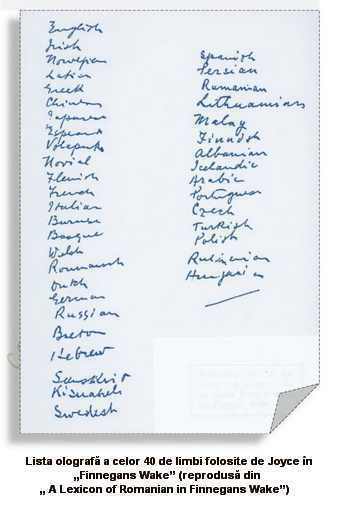 English
Irish
Norwegian
Latin
Greek
Chinese
Japanese
Esperanto
Volapuk
Novial
Flemish
French
Italian
Burmese
Basque
Welsh
Roumansch
Dutch
German
Russian
Breton
Hebrew
Sanskrit
Kisuaheli
Swedish
Spanish
Persian
Rumanian
Lithuanian
Malay
Finnish
Albanian
Icelandic
Arabic
Portuguese
Czech
Turkish
Polish
Ruthenian
Hungarian
Lista olografă a celor 40 de limbi folosite de Joyce în
„Finnegans Wake” (reprodusă din
„ A Lexicon of Romanian in Finnegans Wake”)